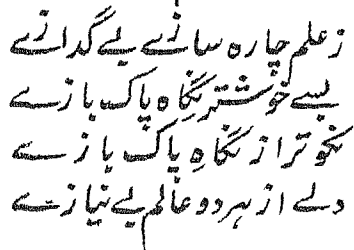 ز علم چاره سازے بے گدازے
بسے خوشتر نگاه پاک بازے
نکوتر از نگاهِ پاک بازے
دلے از هر دو عالم بے نیازے